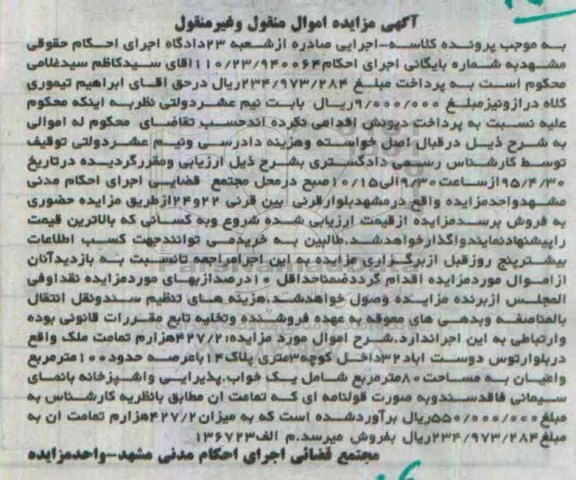 آگهی مزایده اموال منقول وغیرمنقول
به موجب پرونده کلاسه-اجرایی صادره ازشعبه ۲۳دادگاه اجرای احکام حقوقی
مشهدبه شماره بایگانی اجرای احکام۱۱۰/۲۳/۹۴۰۰۶۴آقای سیدکاظم سیدغلامی
محکوم است به پرداخت مبلغ ۲۳۴/۹۷۳/۲۸۴ریال درحق آقای ابراهیم تیموری
کلاه درازونیزمبلغ ۹/۰۰۰/۰۰۰ریال بابت نیم عشردولتی نظربه اینکه محکوم
علیه نسبت به پرداخت دیونش اقدامی نکرده اندحسب تقاضای محکوم له اموالی
به شرح ذیل درقبال اصل خواسته وهزینه دادرسی ونیم عشردولتی توقیف
توسط کارشناس رسمی دادگستری بشرح ذیل ارزیابی ومقررگردیده درتاریخ
۹۵/۴/۳۰ازساعت۹/۳۰الی۱۰/۱۵صبح درمحل مجتمع قضایی اجرای احکام مدنی
مشهدواحدمزایده واقع درمشهدبلوارقرنی بین قرنی ۲۲و۲۴ازطریق مزایده حضوری
به فروش برسدمزایده ازقیمت ارزیابی شده شروع وبه کسانی که بالاترین قیمت
راپیشنهادنمایندواگذارخواهدشد.طالبین به خریدمی توانندجهت کسب اطلاعات
بیشترپنج روزقبل ازبرگزاری مزایده به این اجرامراجعه تانسبت به بازدیدآنان
ازاموال موردمزایده اقدام گرددضمناحداقل ۱۰درصدازبهای موردمزایده نقداوفی
المجلس ازبرنده مزایده وصول خواهدشد.هزینه های تنظیم سندونقل انتقال
بالمناصفه وبدهی های معوقه به عهده فروشنده وتخلیه تابع مقررات قانونی بوده
وارتباطی به این اجراندارد.شرح اموال مورد مزایده:۴۲۷/۲هزارم تمامت ملک واقع
دربلوارتوس دوست اباد۳۲داخل کوچه۳متری پلاک۱۴باعرصه حدود۱۰۰مترمربع
واعیان به مساحت۸۰مترمربع شامل یک خواب،پذیرایی واشپزخانه بانمای
سیمانی فاقدسندوبه صورت قولنامه ای که تمامت ان مطابق بانظریه کارشناس به
مبلغ۵۵۰/۰۰۰/۰۰۰ریال برآوردشده است که به میزان۴۲۷/۲هزارم تمامت ان به
مبلغ۲۳۴/۹۷۳/۲۸۴ریال بفروش میرسد.م الف۱۳۶۷۲۳
مجتمع قضائی اجرای احکام مدنی مشهد-واحدمزایده